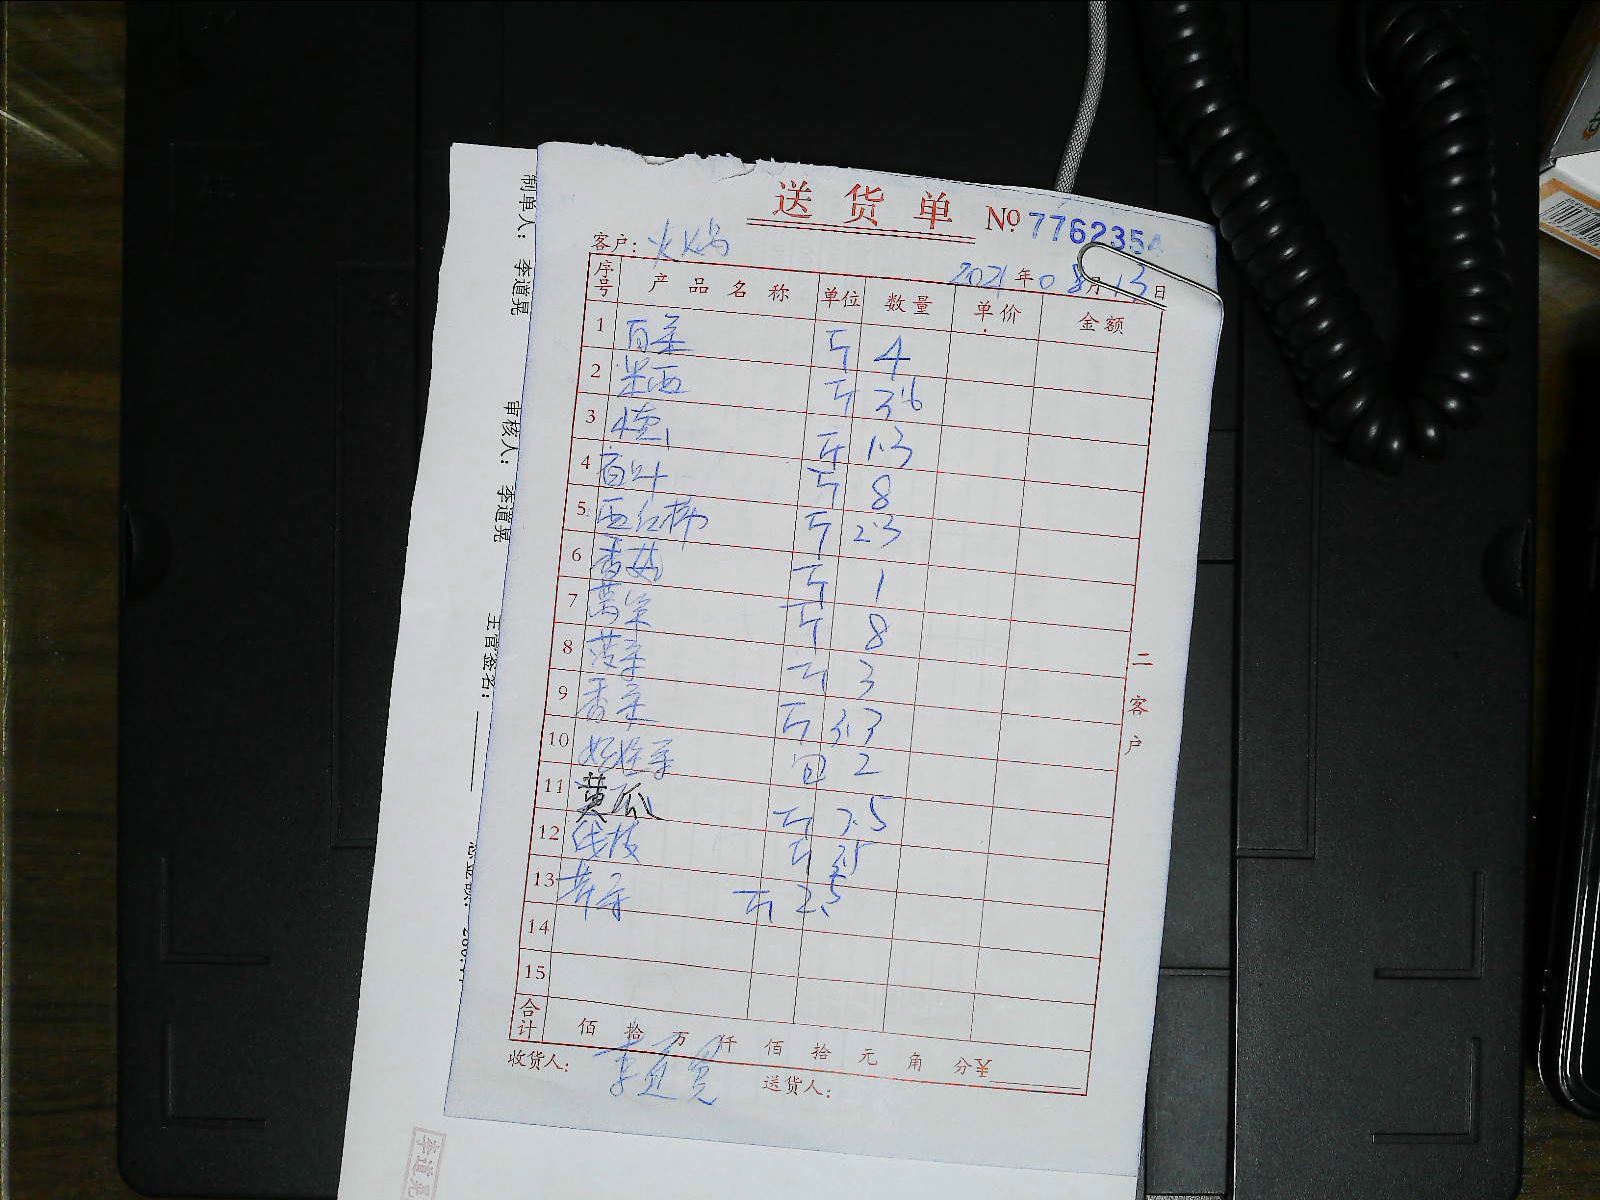 送货单 No 7762354
客户: 火锅
2021年08月13日
序号 产品名称 单位 数量 单价 金额
1 白菜 斤 4
2 斤 3.6
3 斤 1.3
4 百叶 斤 8
5 西红柿 斤 2.3
6 香菇 斤 1
7 斤 8
8 菠菜 斤 3
9 香菜 斤 3.3
10 娃娃菜 包 2
11 黄瓜 斤 3.5
12 斤 3.5
13 斤 2.5
14
15
合计 佰拾万仟佰拾元角分¥
收货人: 李道晃 送货人:
二客户
制单人: 李道晃
审核人: 李道晃
主管签名:
李道晃